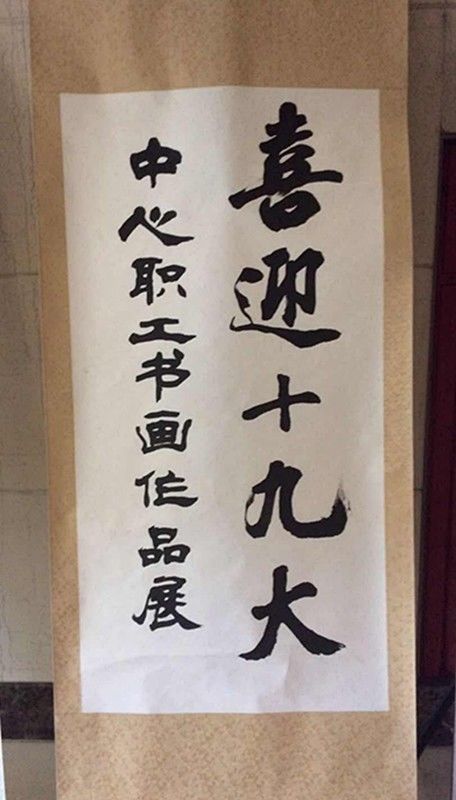 喜迎十九大
中心职工书画作品展